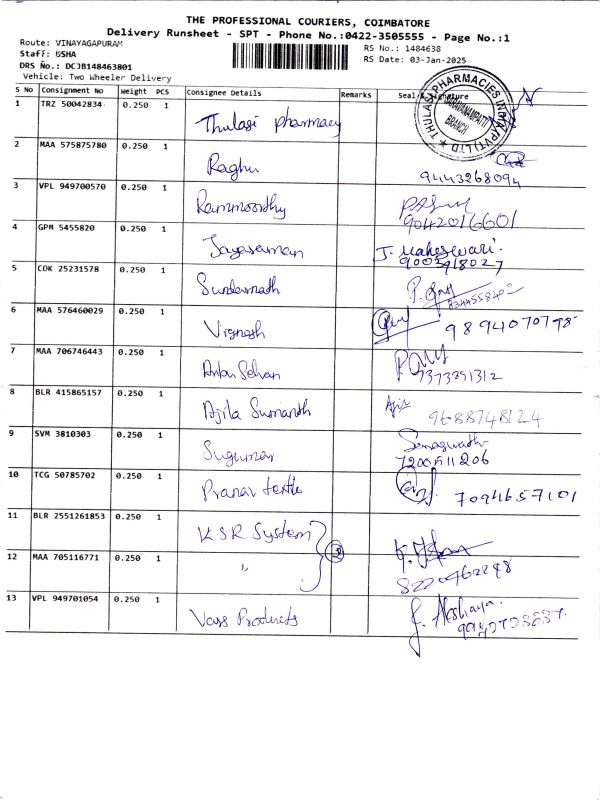 THE PROFESSIONAL COURIERS, COIMBATORE
Delivery Runsheet - SPT - Phone No.:0422-3505555 - Page No.:1
Route: VINAYAGAPURAM
RS No.: 1484638
Staff: USHA
RS Date: 03-Jan-2025
DRS No.: DCJB148463801
Vehicle: Two Wheeler Delivery
S No Consignment No Weight PCS Consignee Details Remarks Seal &
THULASI PHARMACIES INDIA (PVT) LTD
BRANCH
1 TRZ 50042834 0.250 1 Thulasi pharmacy
2 MAA 575875780 0.250 1 Raghu 9443268094
3 VPL 949700570 0.250 1 Rammoorthy 9042016601
4 GPM 5455820 0.250 1 Jayaraman J. Maheswari.
9003918027
5 COK 25231578 0.250 1 Sundarnath 8344558402
6 MAA 576460029 0.250 1 Vignesh
7 MAA 706746443 0.250 1 Anbu Selvan 7373391312
8 BLR 415865157 0.250 1 Ajila Sumanth 9688748124
9 SVM 3810303 0.250 1 Sugumar
7200511206
10 TCG 50785702 0.250 1 Pranav textile 7094657101
11 BLR 2551261853 0.250 1 KSR System
12 MAA 705116771 0.250 1 "
13 VPL 949701054 0.250 1 Vass Products Akshaya.